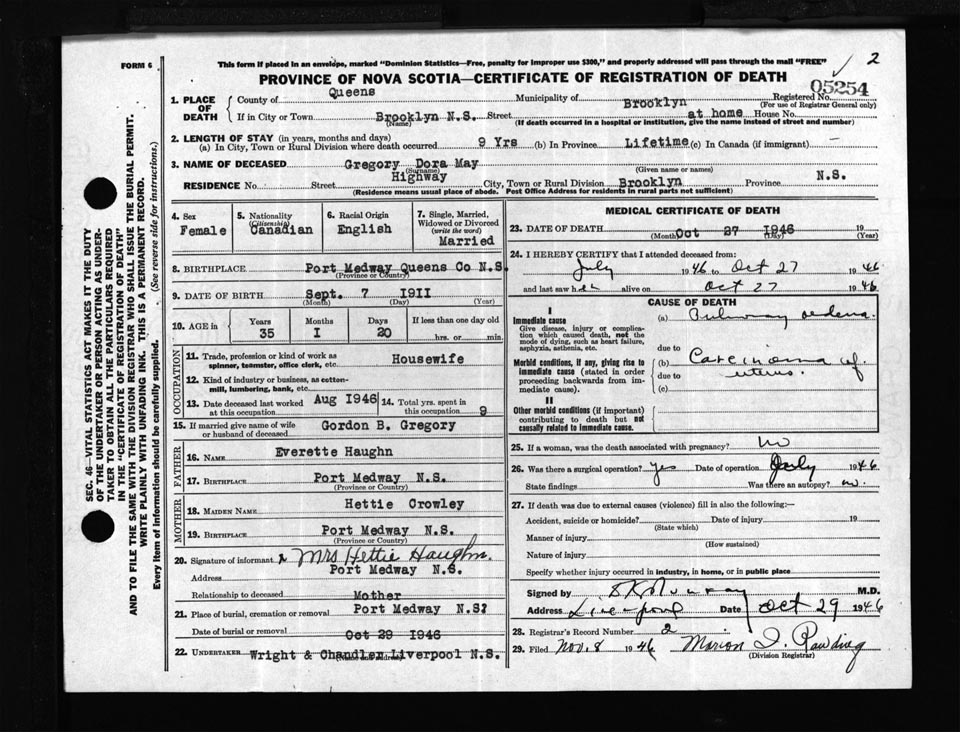 2
FORM 6
This form if placed in an envelope, marked "Dominion Statistics—Free, penalty for improper use $300," and properly addressed will pass through the mail "FREE"
PROVINCE OF NOVA SCOTIA—CERTIFICATE OF REGISTRATION OF DEATH
05254
1. PLACE OF DEATH County of Queens Municipality of Brooklyn Registered No.
(For use of Registrar General only)
If in City or Town Brooklyn N.S. Street at home House No.
(Name) (If death occurred in a hospital or institution, give the name instead of street and number)
2. LENGTH OF STAY (in years, months and days)
(a) In City, Town or Rural Division where death occurred 9 Yrs (b) In Province Lifetime (c) In Canada (if immigrant) —
3. NAME OF DECEASED Gregory Dora May
(Surname) (Given name or names)
RESIDENCE No. Street Highway City, Town or Rural Division Brooklyn Province N.S.
(Residence means usual place of abode. Post Office Address for residents in rural parts not sufficient)
4. Sex Female
5. Nationality (Citizenship) Canadian
6. Racial Origin English
7. Single, Married, Widowed or Divorced (write the word) Married
8. BIRTHPLACE Port Medway Queens Co N.S.
(Province or Country)
9. DATE OF BIRTH Sept. 7 1911
(Month) (Day) (Year)
10. AGE in Years 35 Months 1 Days 20 If less than one day old hrs. or min.
OCCUPATION
11. Trade, profession or kind of work as spinner, teamster, office clerk, etc. Housewife
12. Kind of industry or business, as cotton-mill, lumbering, bank, etc.
13. Date deceased last worked at this occupation Aug 1946 14. Total yrs. spent in this occupation 9
15. If married give name of wife or husband of deceased Gordon B. Gregory
FATHER
16. NAME Everette Haughn
17. BIRTHPLACE Port Medway N.S.
(Province or Country)
MOTHER
18. MAIDEN NAME Hettie Crowley
19. BIRTHPLACE Port Medway N.S.
(Province or Country)
20. Signature of informant Mrs Hettie Haughn.
Address Port Medway N.S.
Relationship to deceased Mother
21. Place of burial, cremation or removal Port Medway N.S?
Date of burial or removal Oct 29 1946
22. UNDERTAKER Wright & Chandler Liverpool N.S.
(Name and address)
MEDICAL CERTIFICATE OF DEATH
23. DATE OF DEATH Oct 27 1946 19
(Month) (Day) (Year)
24. I HEREBY CERTIFY that I attended deceased from:
July 1946 to Oct 27 1946
and last saw her alive on Oct 27 1946
CAUSE OF DEATH
I
Immediate cause
Give disease, injury or complication which caused death, not the mode of dying, such as heart failure, asphyxia, asthenia, etc.
(a) Pulmonary oedema
due to
Morbid conditions, if any, giving rise to immediate cause (stated in order proceeding backwards from immediate cause).
(b) Carcinoma of
due to uterus.
(c)
II
Other morbid conditions (if important) contributing to death but not causally related to immediate cause.
25. If a woman, was the death associated with pregnancy? no
26. Was there a surgical operation? yes Date of operation July 1946
State findings Was there an autopsy? no.
27. If death was due to external causes (violence) fill in also the following:—
Accident, suicide or homicide? Date of injury 19
(State which)
Manner of injury
(How sustained)
Nature of injury
Specify whether injury occurred in industry, in home, or in public place
Signed by M.D.
Address Liverpool Date Oct 29 1946
28. Registrar's Record Number 2
29. Filed Nov. 8 1946 Marion I. Rawding
(Division Registrar)
SEC. 46—VITAL STATISTICS ACT MAKES IT THE DUTY
OF THE UNDERTAKER OR PERSON ACTING AS UNDER-
TAKER TO OBTAIN ALL THE PARTICULARS REQUIRED
IN THE "CERTIFICATE OF REGISTRATION OF DEATH"
AND TO FILE THE SAME WITH THE DIVISION REGISTRAR WHO SHALL ISSUE THE BURIAL PERMIT.
WRITE PLAINLY WITH UNFADING INK. THIS IS A PERMANENT RECORD.
Every item of Information should be carefully supplied. (See reverse side for instructions.)